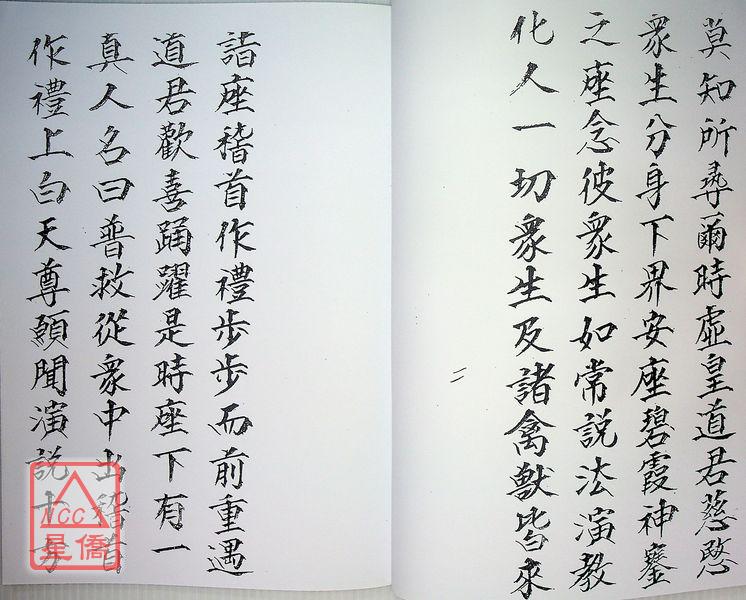 莫知所尋爾時虛皇道君慈愍
衆生分身下界安座碧霞神鑾
之座念彼衆生如常說法演教
化人一切衆生及諸禽獸皆來
二
詣座稽首作禮步步而前重遇
道君歡喜踊躍是時座下有一
真人名曰普救從衆中出稽首
作禮上白天尊願聞演說十方
NCC
星僑